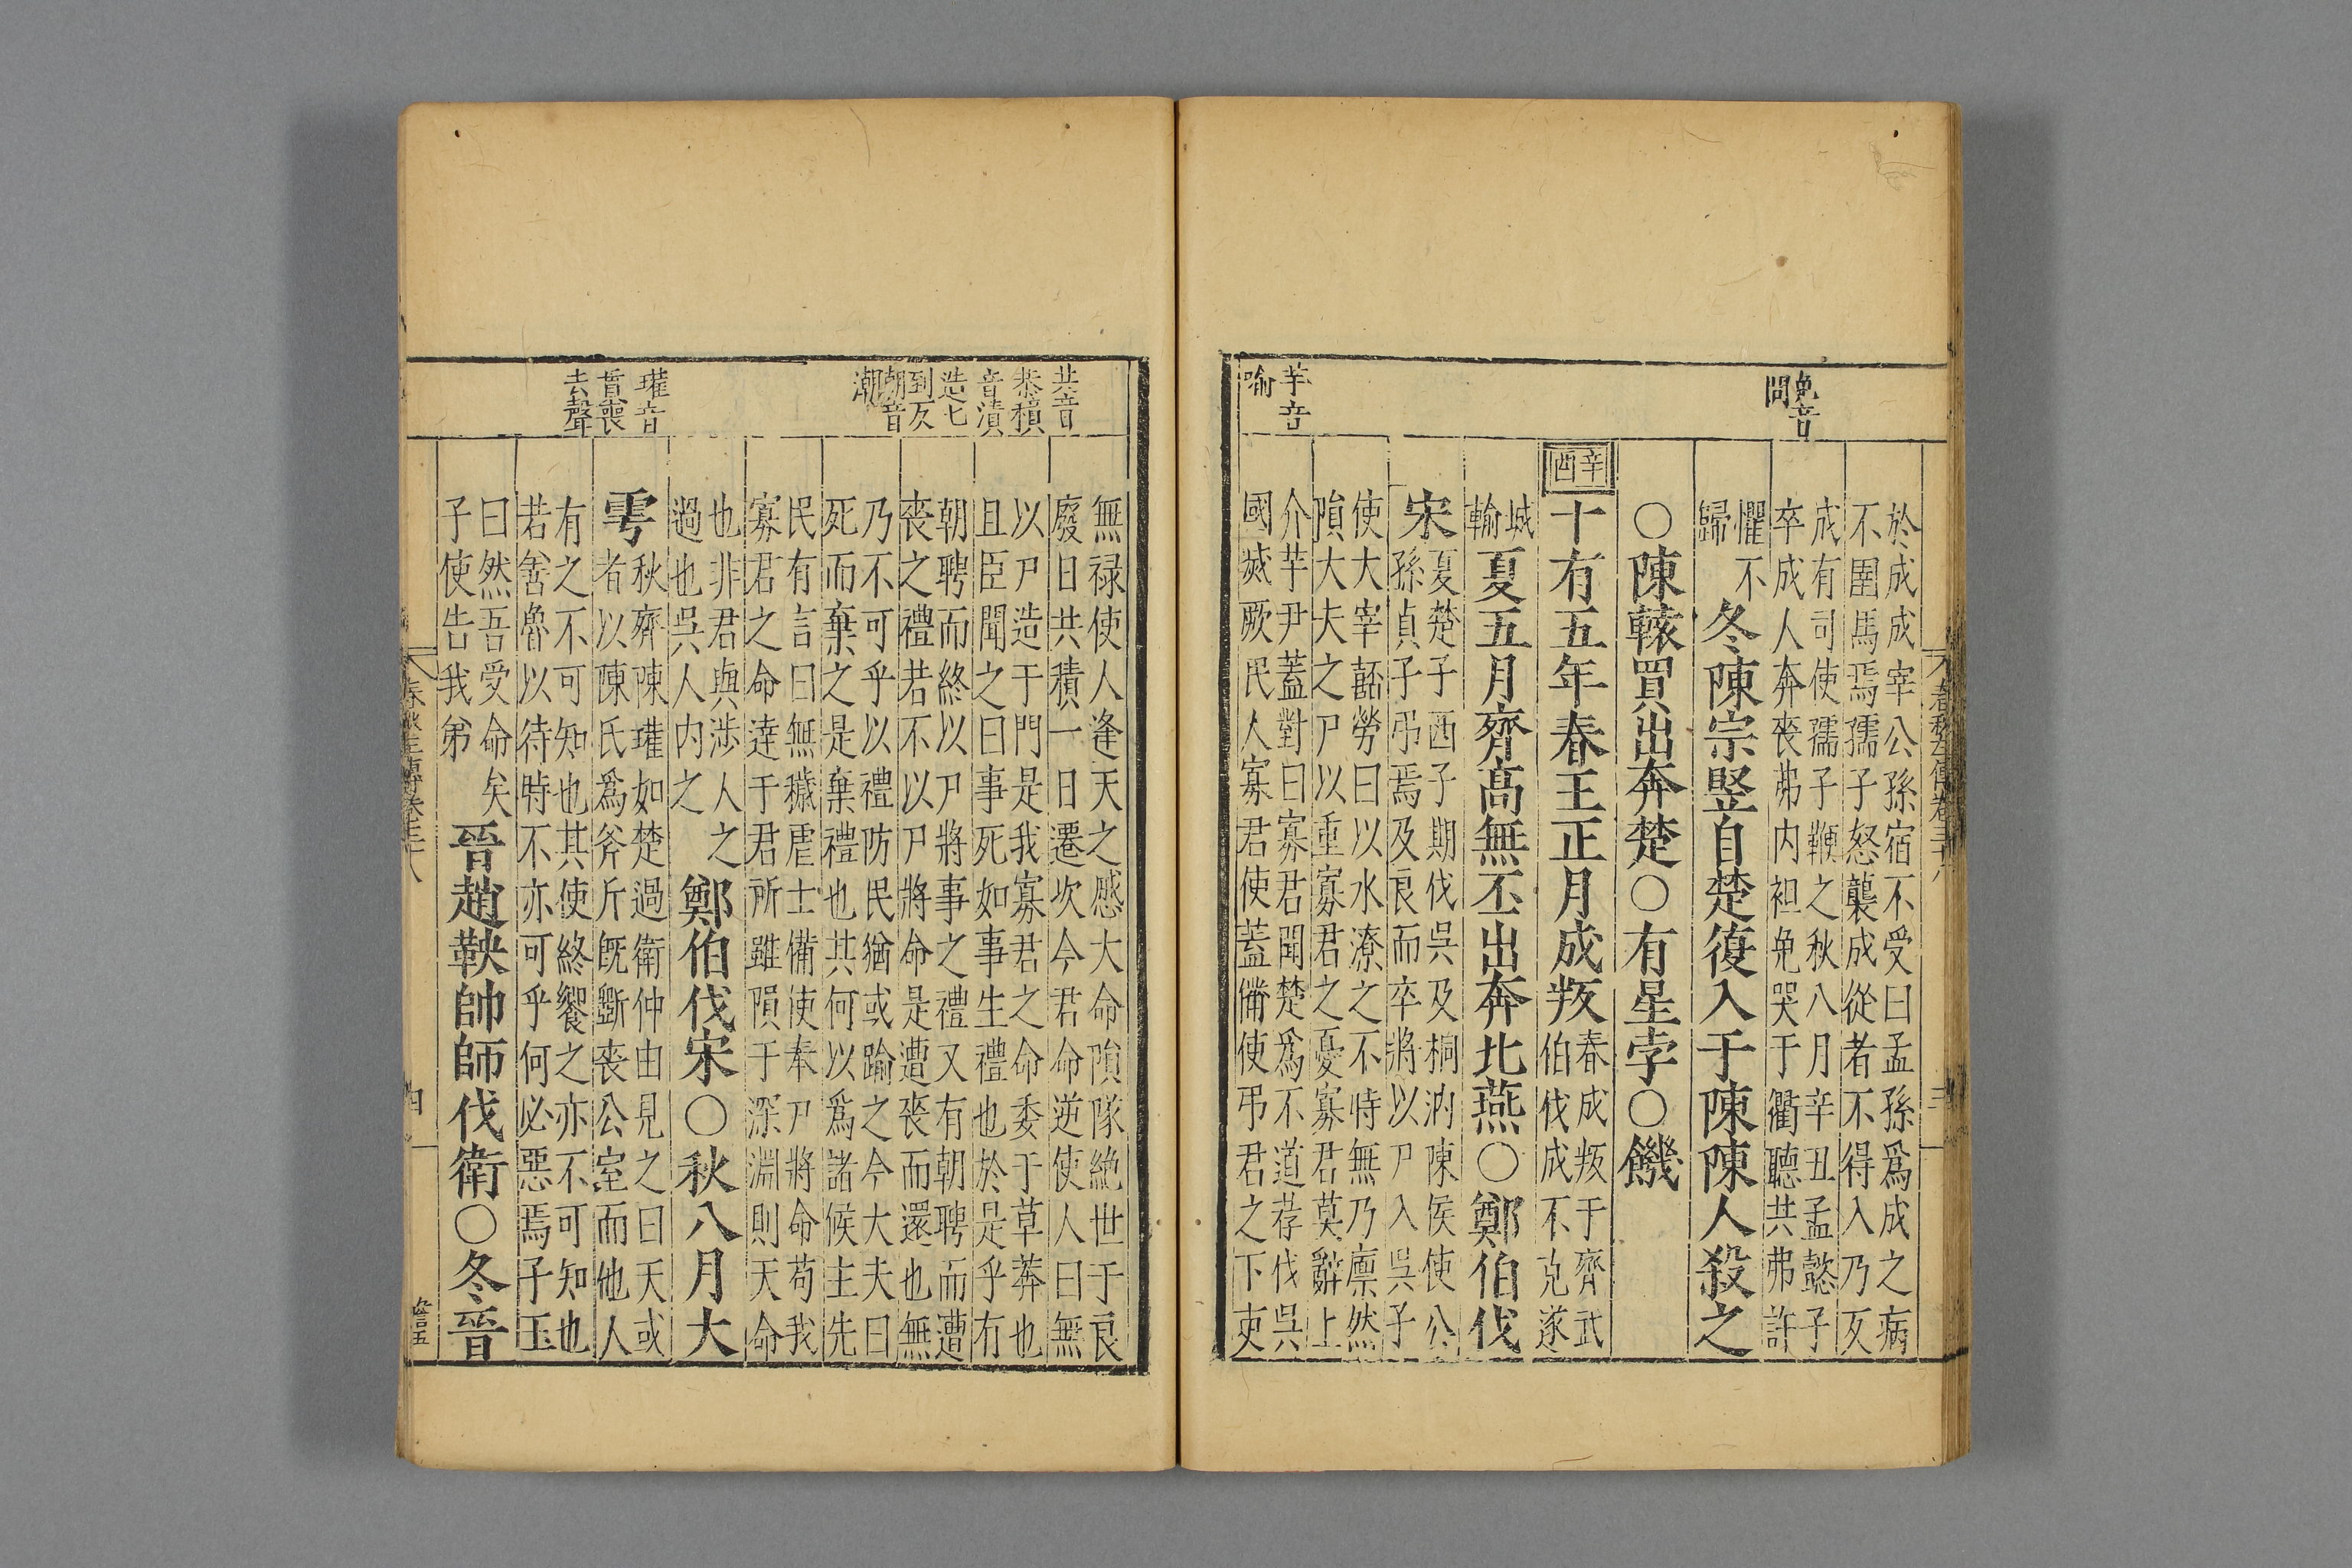 免音
問
芋音
喻
於成成宰公孫宿不受曰孟孫爲成之病
不圉馬焉孺子怒襲成從者不得入乃反
成有司使孺子鞭之秋八月辛丑孟懿子
卒成人奔喪弗内袒免哭于衢聽共弗許
懼不
歸
冬陳宗豎自楚復入于陳陳人殺之
○陳轅買出奔楚○有星孛○饑
辛酉
十有五年春王正月成叛
春成叛于齊武
伯伐成不克遂
城
輸
夏五月齊高無丕出奔北燕○鄭伯伐
宋
夏楚子西子期伐吳及桐汭陳侯使公
孫貞子弔焉及良而卒將以尸入吳子
使大宰嚭勞曰以水潦之不時無乃廪然
隕大夫之尸以重寡君之憂寡君莫辭上
介芋尹蓋對曰寡君聞楚爲不道荐伐吳
國滅厥民人寡君使蓋備使弔君之下吏
春秋左傳卷三十八
三
共音
恭積
音漬
造七
到反
朝音
潮
瓘音
貫喪
去聲
無禄使人逢天之慼大命隕隊絶世于良
廢日共積一日遷次今君命逆使人曰無
以尸造于門是我寡君之命委于草莽也
且臣聞之曰事死如事生禮也於是乎有
朝聘而終以尸將事之禮又有朝聘而遭
喪之禮若不以尸將命是遭喪而還也無
乃不可乎以禮防民猶或踰之今大夫曰
死而棄之是棄禮也其何以爲諸候主先
民有言曰無穢虐士備使奉尸將命苟我
寡君之命達于君所雖隕于深淵則天命
也非君與涉人之
過也吳人内之
鄭伯伐宋○秋八月大
雩
秋齊陳瓘如楚過衛仲由見之曰天或
者以陳氏爲斧斤旣斵喪公室而他人
有之不可知也其使終饗之亦不可知也
若善魯以待時不亦可乎何必惡焉子玉
曰然吾受命矣
子使告我弟
晉趙鞅帥師伐衛○冬晉
春秋左傳卷三十八
四